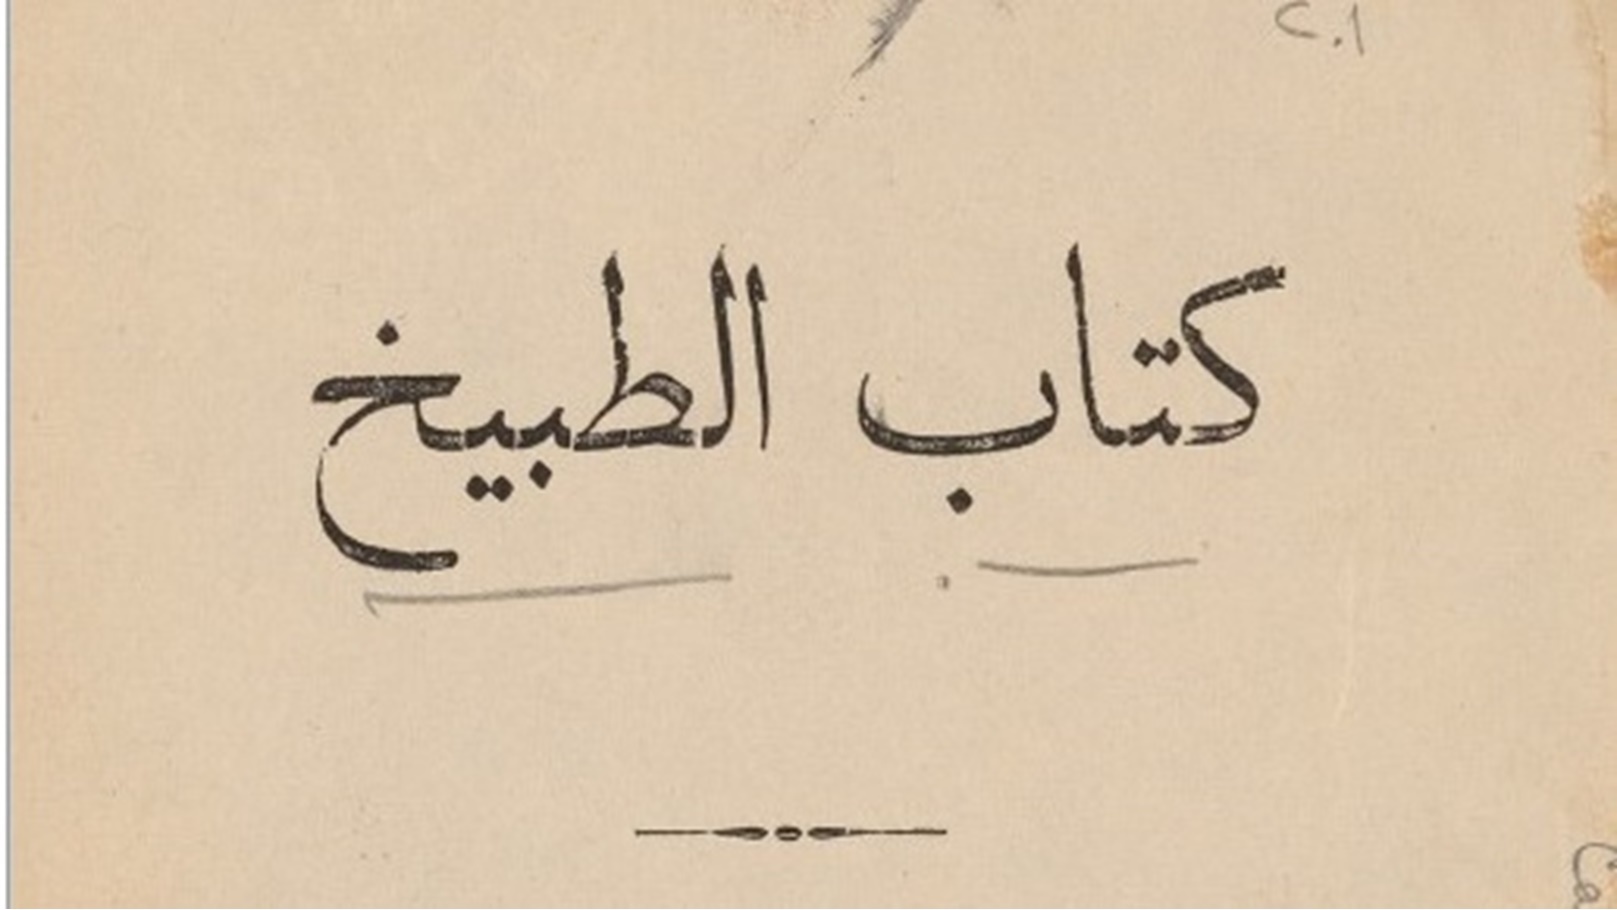 c.1
كتاب الطبيخ